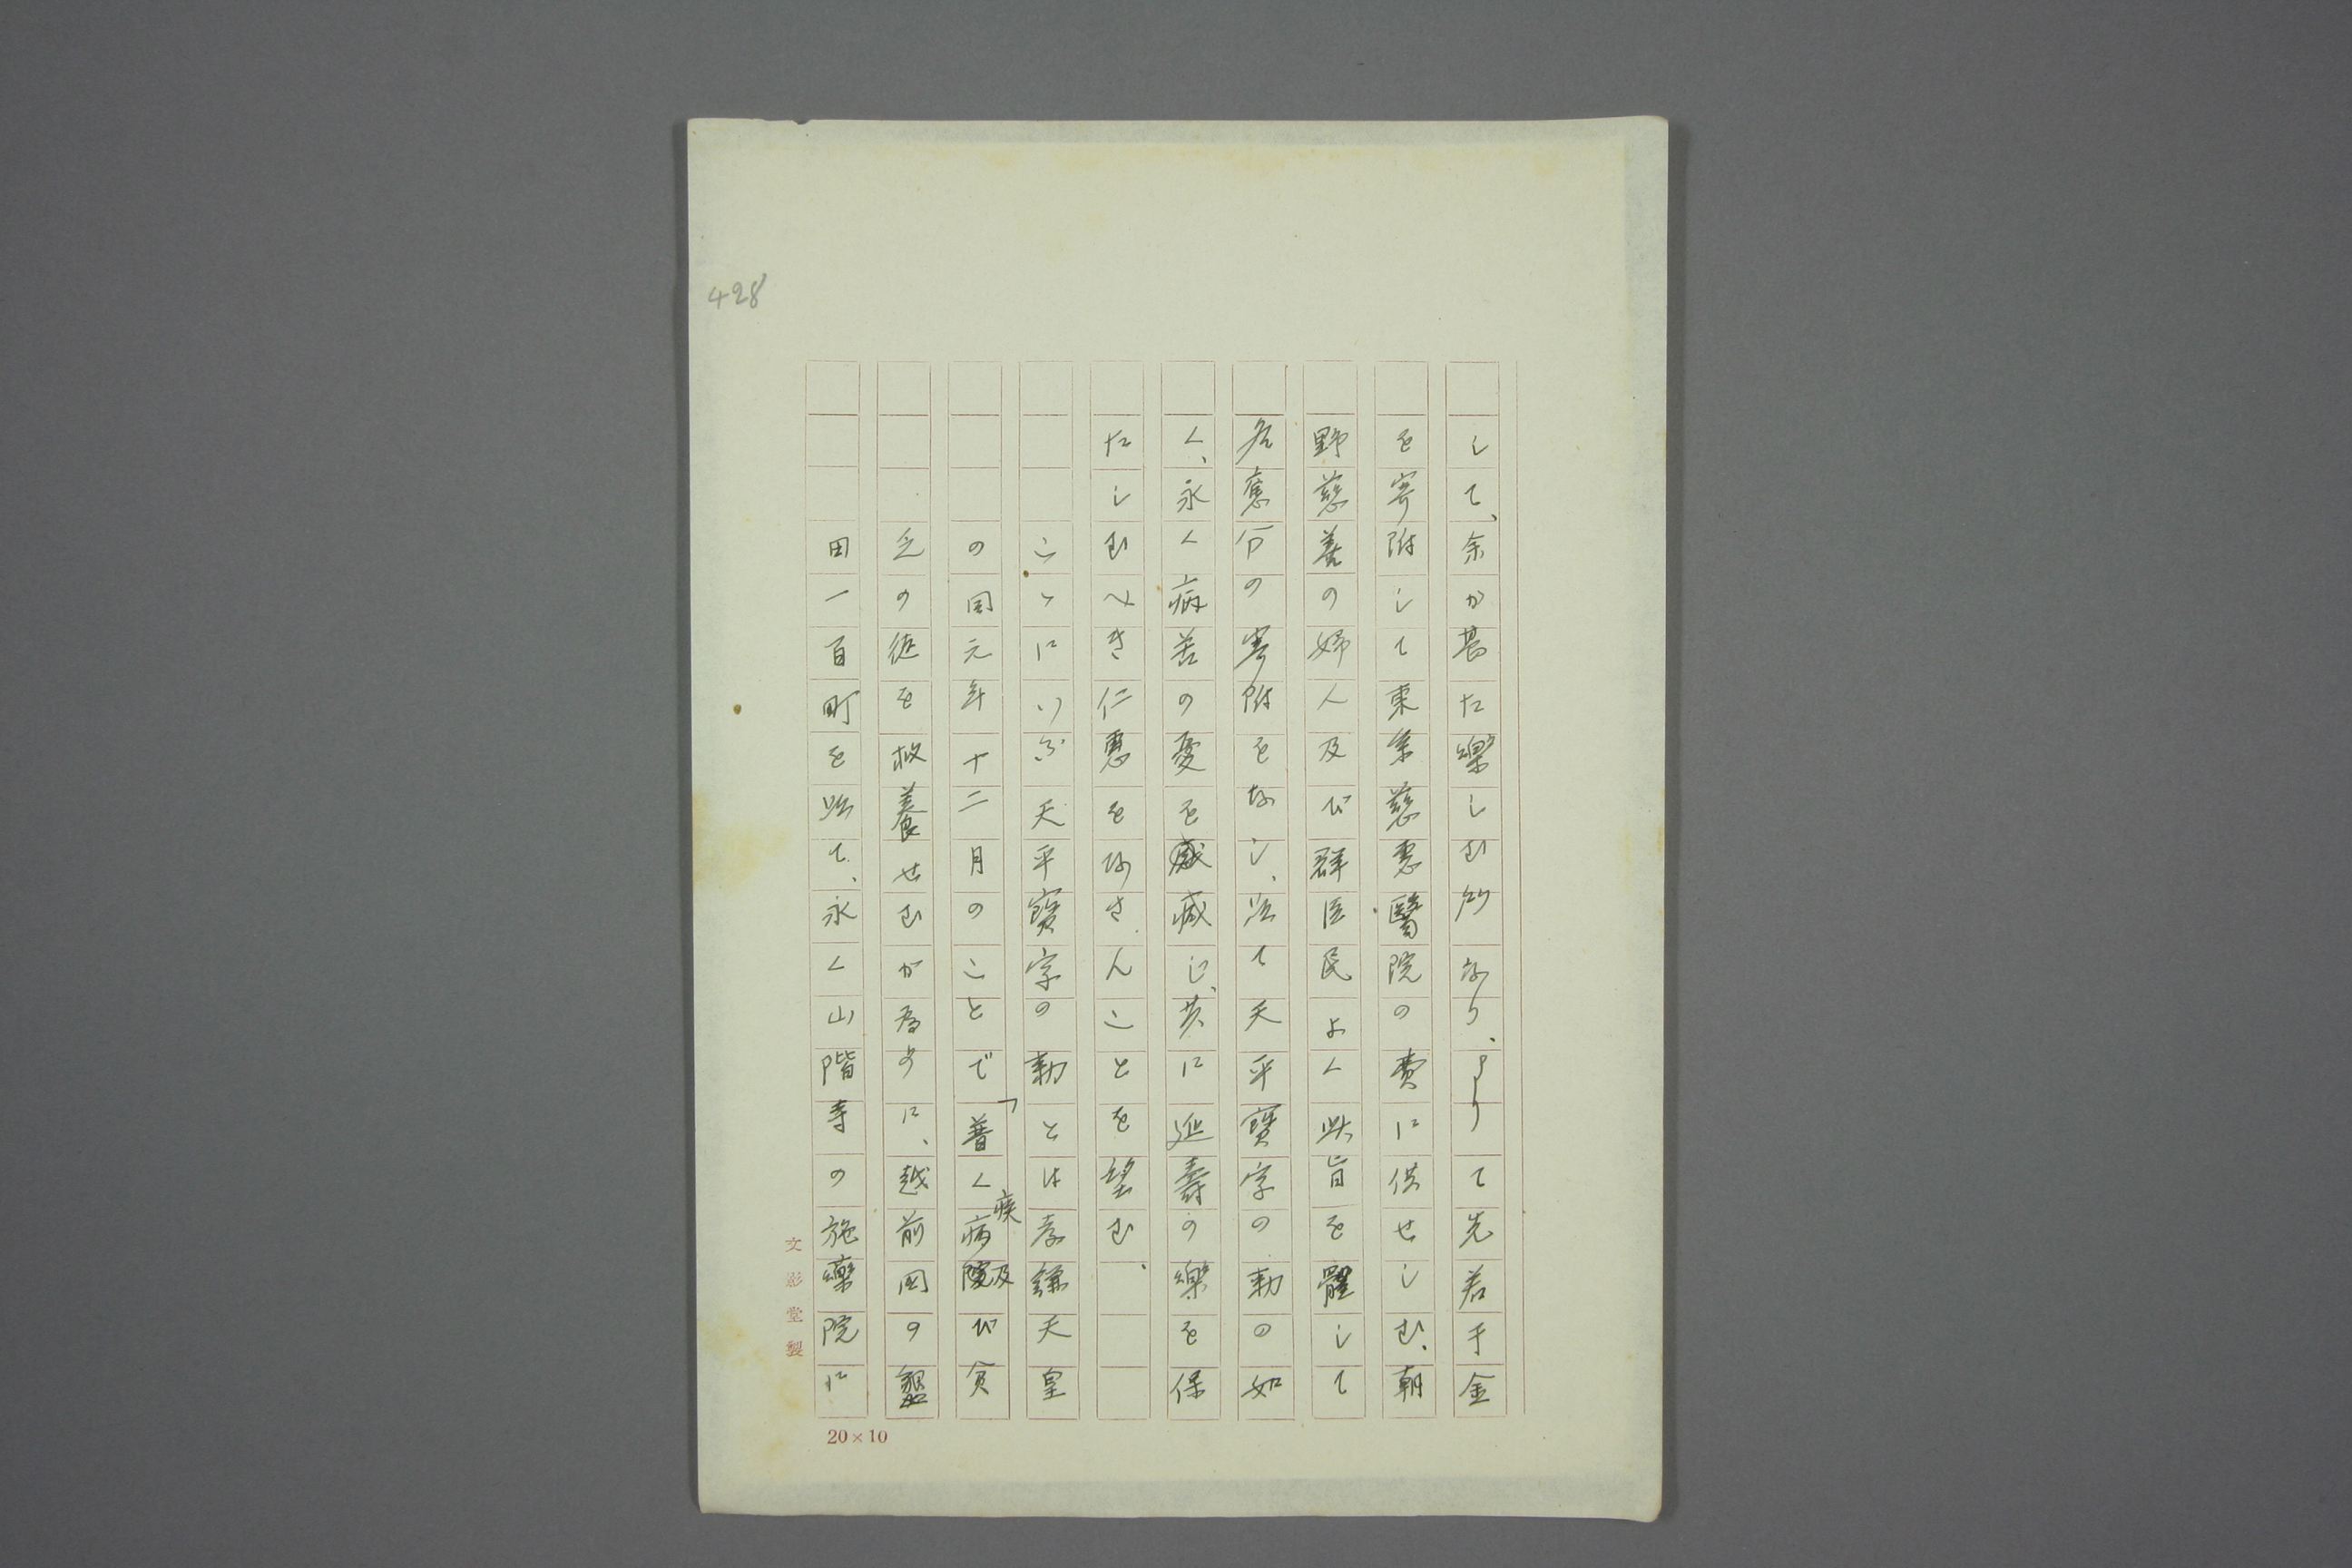 428
して、余か甚た樂しむ所なり、より て先若干金
を寄附して東京慈惠醫院の費に供せしむ、朝
野慈善の婦人及び群臣民よく此旨を體して
各應分の寄附をなし、次て天平寶字の勅の如
く、永く病苦の憂を減し、共に延壽の樂を保
たしむへき仁惠をなさんことを望む、
こゝにいふ天平寶字の勅とは孝謙天皇
の同元年十二月のことで「普く疾病及び貧
乏の徒を救養せむが為めに、越前国の墾
田一百町を以て、永く山階寺の施藥院に
文影堂製
20×10